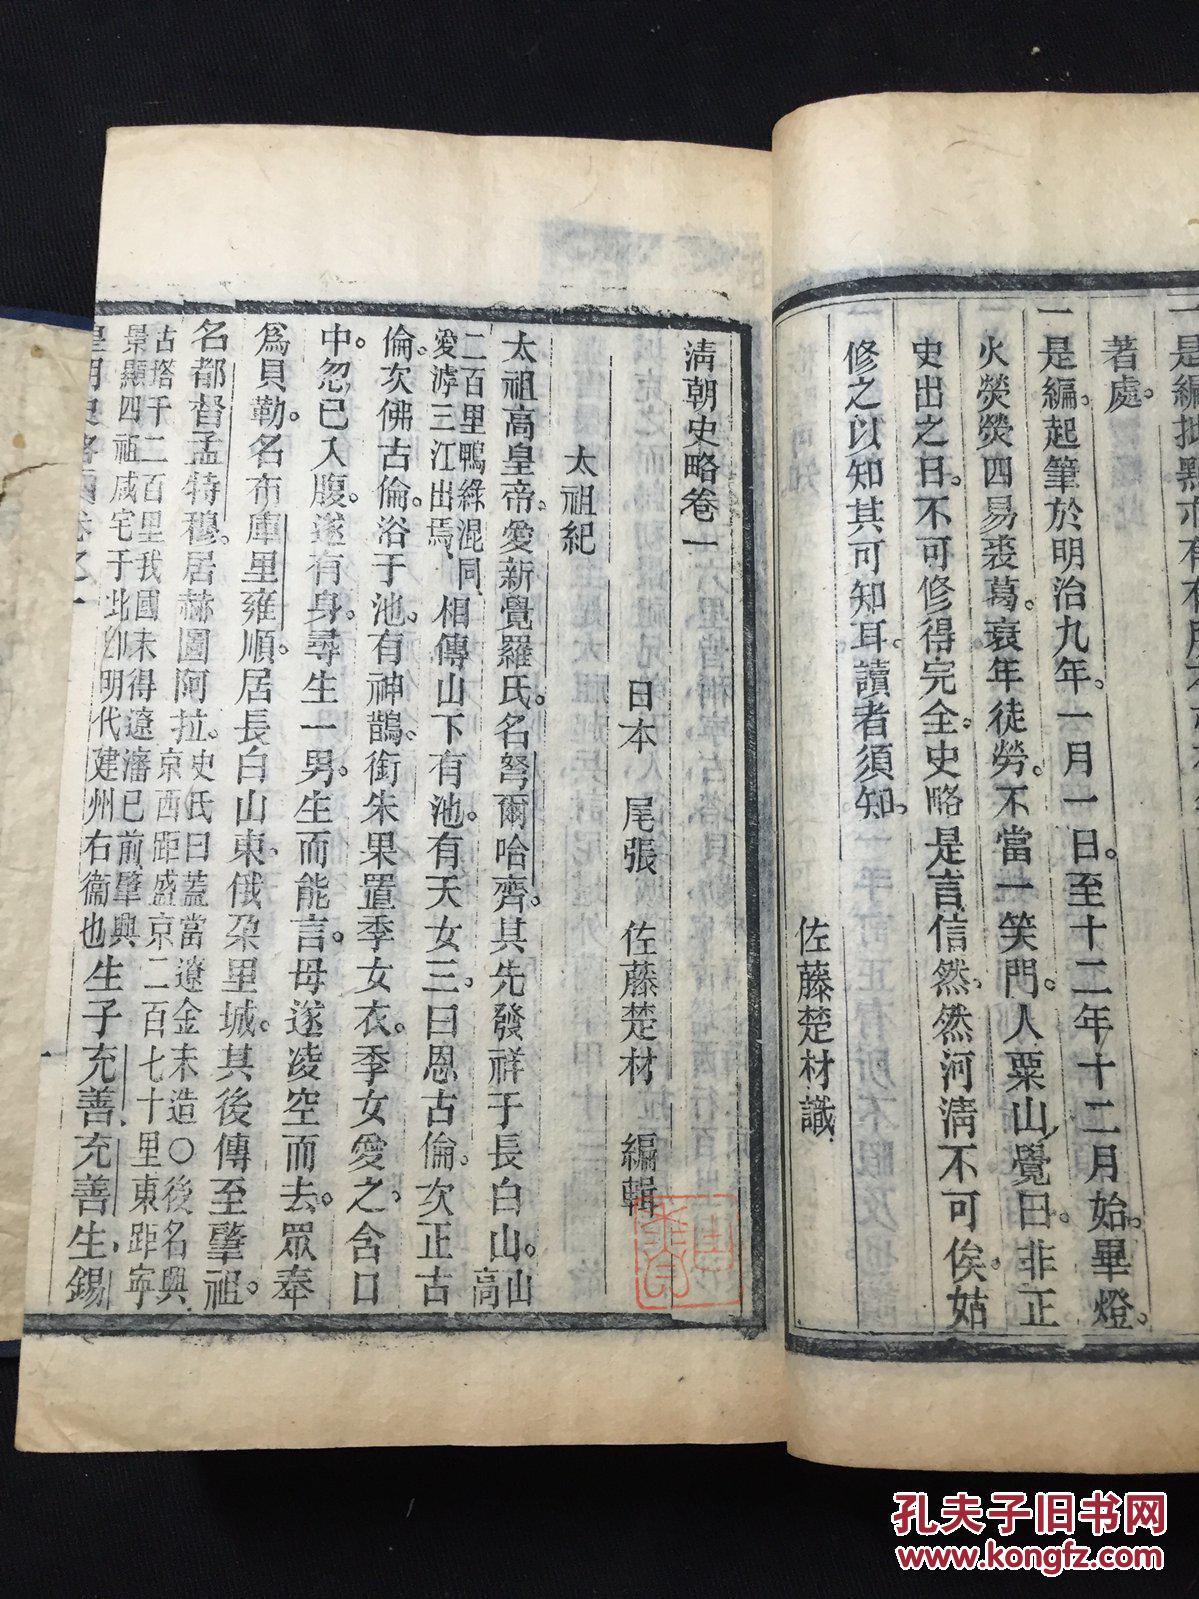 著處。
一是編。起筆於明治九年。一月一日。至十二年十二月始。畢燈。
火熒熒四易裘葛。衰年徒勞。不當一笑。門人粟山覺曰。非正
史出之日。不可修得完全。史略是言信然。然河淸不可俟。姑
修之以知其可知耳。讀者須知。
佐藤楚材識
淸朝史略卷一
日本 尾張 佐藤楚材 編輯
太祖紀
太祖高皇帝。愛新覺羅氏。名弩爾哈齊。其先發祥于長白山。山高
二百里鴨綠混同
愛滹三江出焉、相傳山下有池。有天女三。曰恩古倫。次正古
倫。次佛古倫。浴于池。有神鵲。銜朱果置季女衣。季女愛之。含口
中。忽已入腹。遂有身。尋生一男。生而能言。母遂凌空而去。眾奉
爲貝勒。名布庫里雍順。居長白山東。俄朶里城。其後傳至肇祖。
名都督孟特穆。居赫圖阿拉。史氏曰蓋當遼金末造〇後名興
京西距盛京二百七十里東距寧
古塔千二百里我國未得遼瀋已前肇興
景顯四祖咸宅于北卽明代建州右衞也生子充善。充善生錫
孔夫子旧书网
www.kongfz.com